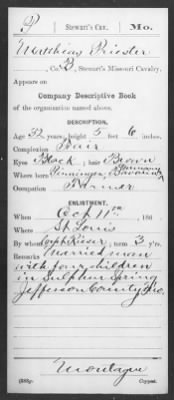 P | Stewart's Cav. | Mo.
Priester
, Co. B, Stewart's Missouri Cavalry.
Appears on
Company Descriptive Book
of the organization named above.
DESCRIPTION.
Age 32 years; height 5 feet 6 inches.
Complexion Fair
Eyes Black ; hair Brown
Where born Germany
Occupation Farmer
ENLISTMENT.
When Oct 11th , 186
Where St. Louis
By whom Capt ; term 3 y'rs.
Remarks Married man
with four children
in Sulphur Spring
Jefferson County Mo.
Montague
(383g) Copyist.